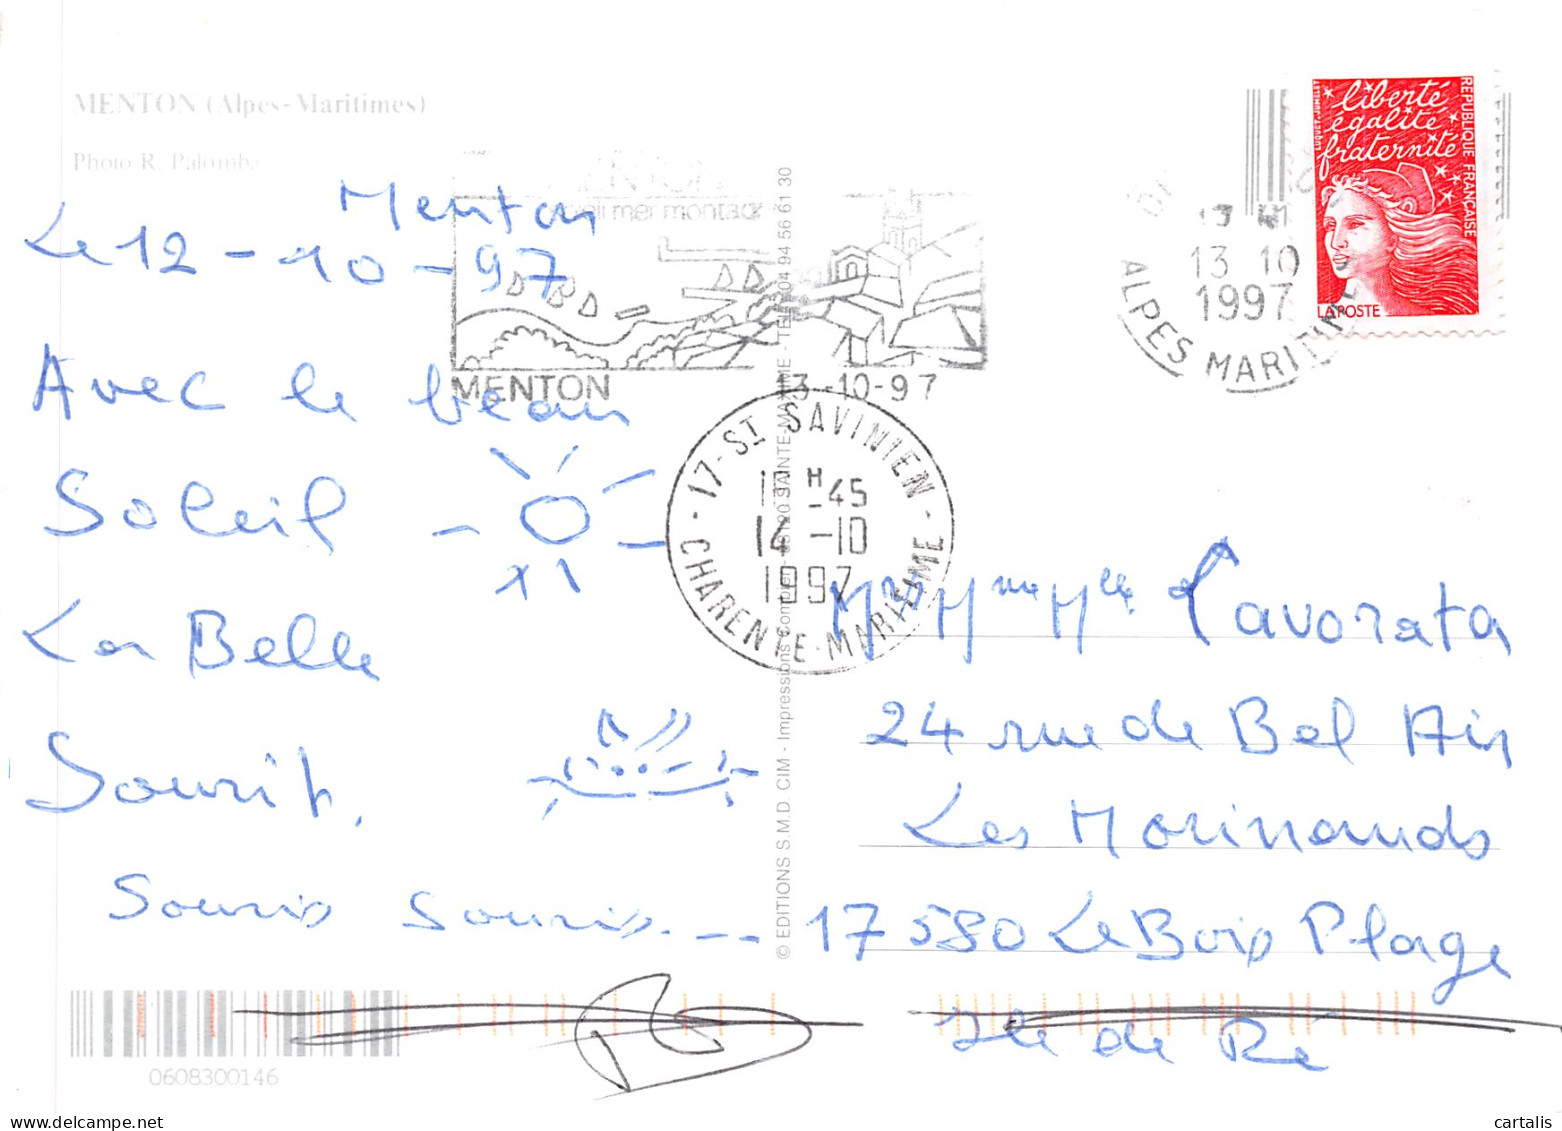 MENTON (Alpes-Maritimes)
Photo R. Palomba
Menton
Le 12-10-97
Avec le beau
Soleil
La Belle
Souris.
Souris Souris...
0608300146
MENTON
13-10-97
17-ST SAVINIEN -
H-45
14-10
1997
CHARENTE-MARITIME
© EDITIONS S.M.D CIM - Impressions Combier
SAINTE-MAXIME TEL 04 94 56 61 30
13 10
1997
ALPES MARITIMES
liberté
égalité
fraternité
RÉPUBLIQUE FRANÇAISE
LA POSTE
Mr Mme Mlle Favorata
24 rue de Bel Air
Les Morinands
17 580 Le Bois Plage
Ile de Ré
cartalis